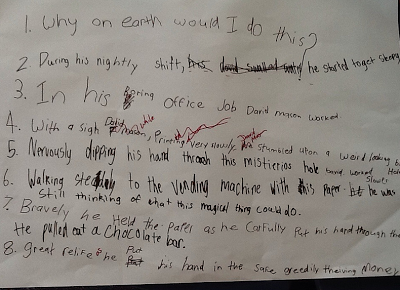 1. Why on earth would I do this?
2 During his nightly shift, he started to get sleepy
3. In his Boring office Job David mason worked
4. With a sigh mason, Printed very stumbled upon a weird looking
5. Nervously dipping his hand through this misticrios hole
6. Walking to the vending machine with his paper he was
still thinking of what this magical thing could do.
7. Bravely he Held the Paper as he Carfully Put his hand through the
He pulled out a chocolate bar.
8. Great relife he Put his hand in the safe greedily money